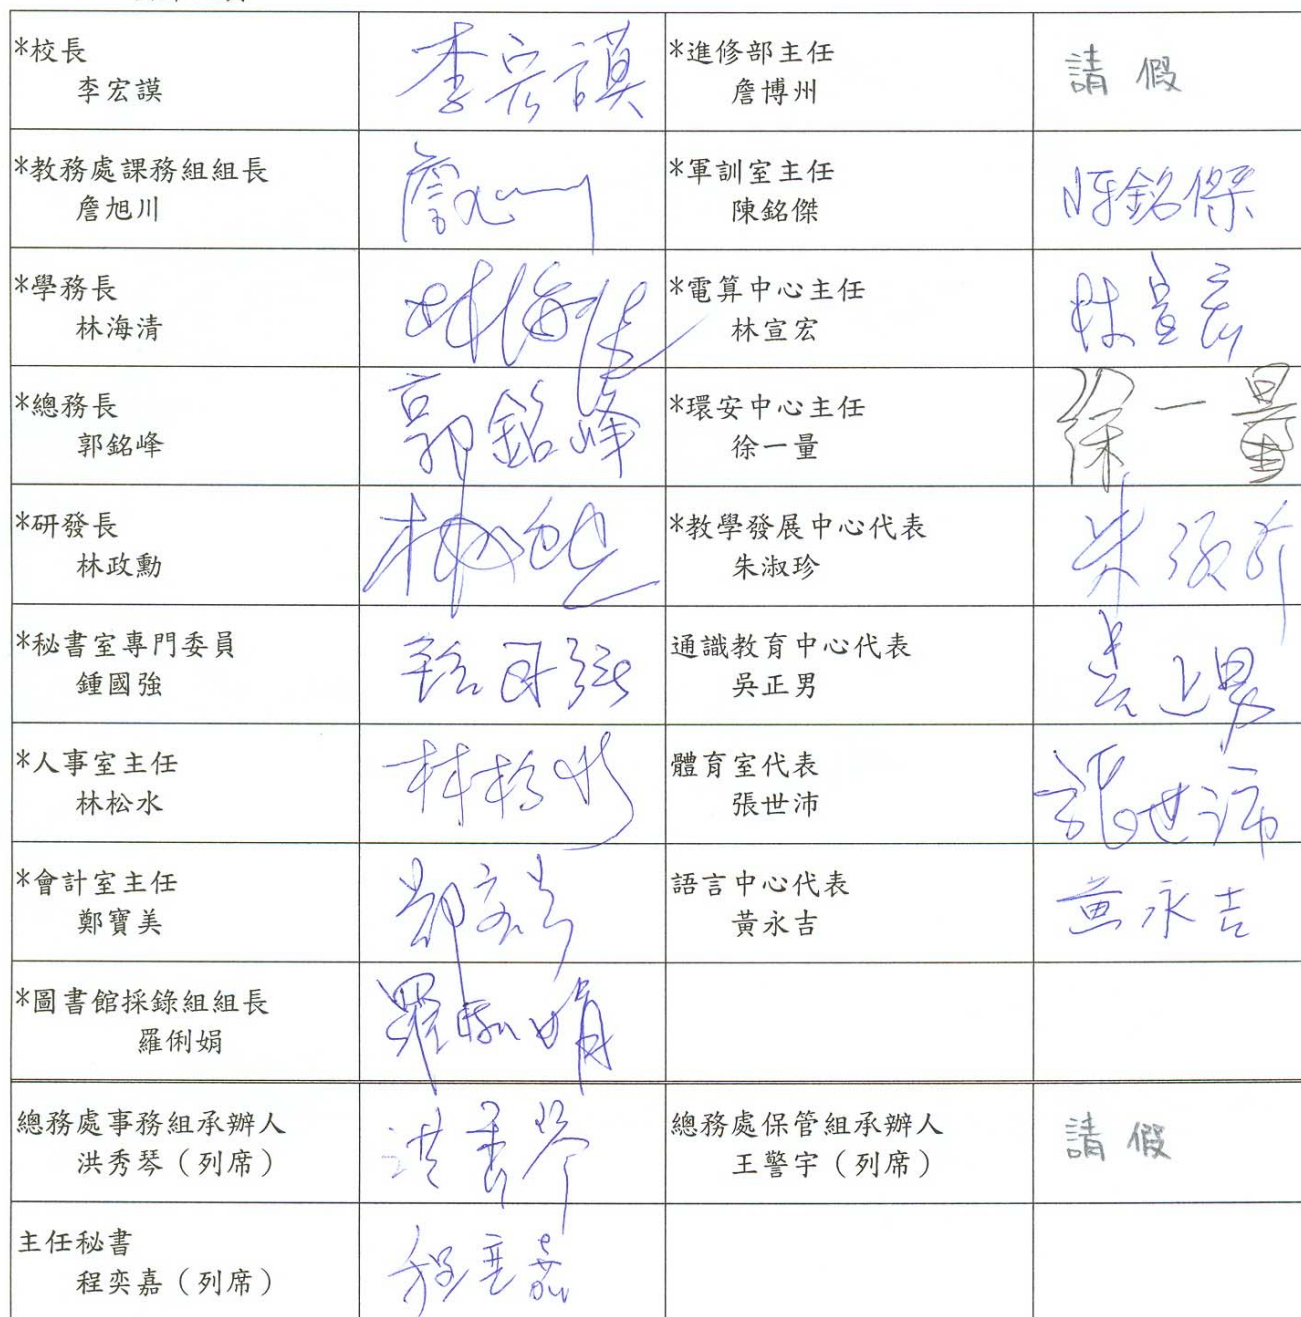 *校長
李宏謨
李宏謨
*進修部主任
詹博州
請假
*教務處課務組組長
詹旭川
詹旭川
*軍訓室主任
陳銘傑
陳銘傑
*學務長
林海清
林海清
*電算中心主任
林宣宏
林宣宏
*總務長
郭銘峰
郭銘峰
*環安中心主任
徐一量
徐一量
*研發長
林政勳
*教學發展中心代表
朱淑珍
朱淑珍
*秘書室專門委員
鍾國強
鍾国強
通識教育中心代表
吳正男
吳正男
*人事室主任
林松水
林松水
體育室代表
張世沛
張世沛
*會計室主任
鄭寶美
語言中心代表
黃永吉
黃永吉
*圖書館採錄組組長
羅俐娟
羅俐娟
總務處事務組承辦人
洪秀琴（列席）
洪秀琴
總務處保管組承辦人
王警宇（列席）
請假
主任秘書
程奕嘉（列席）
程奕嘉